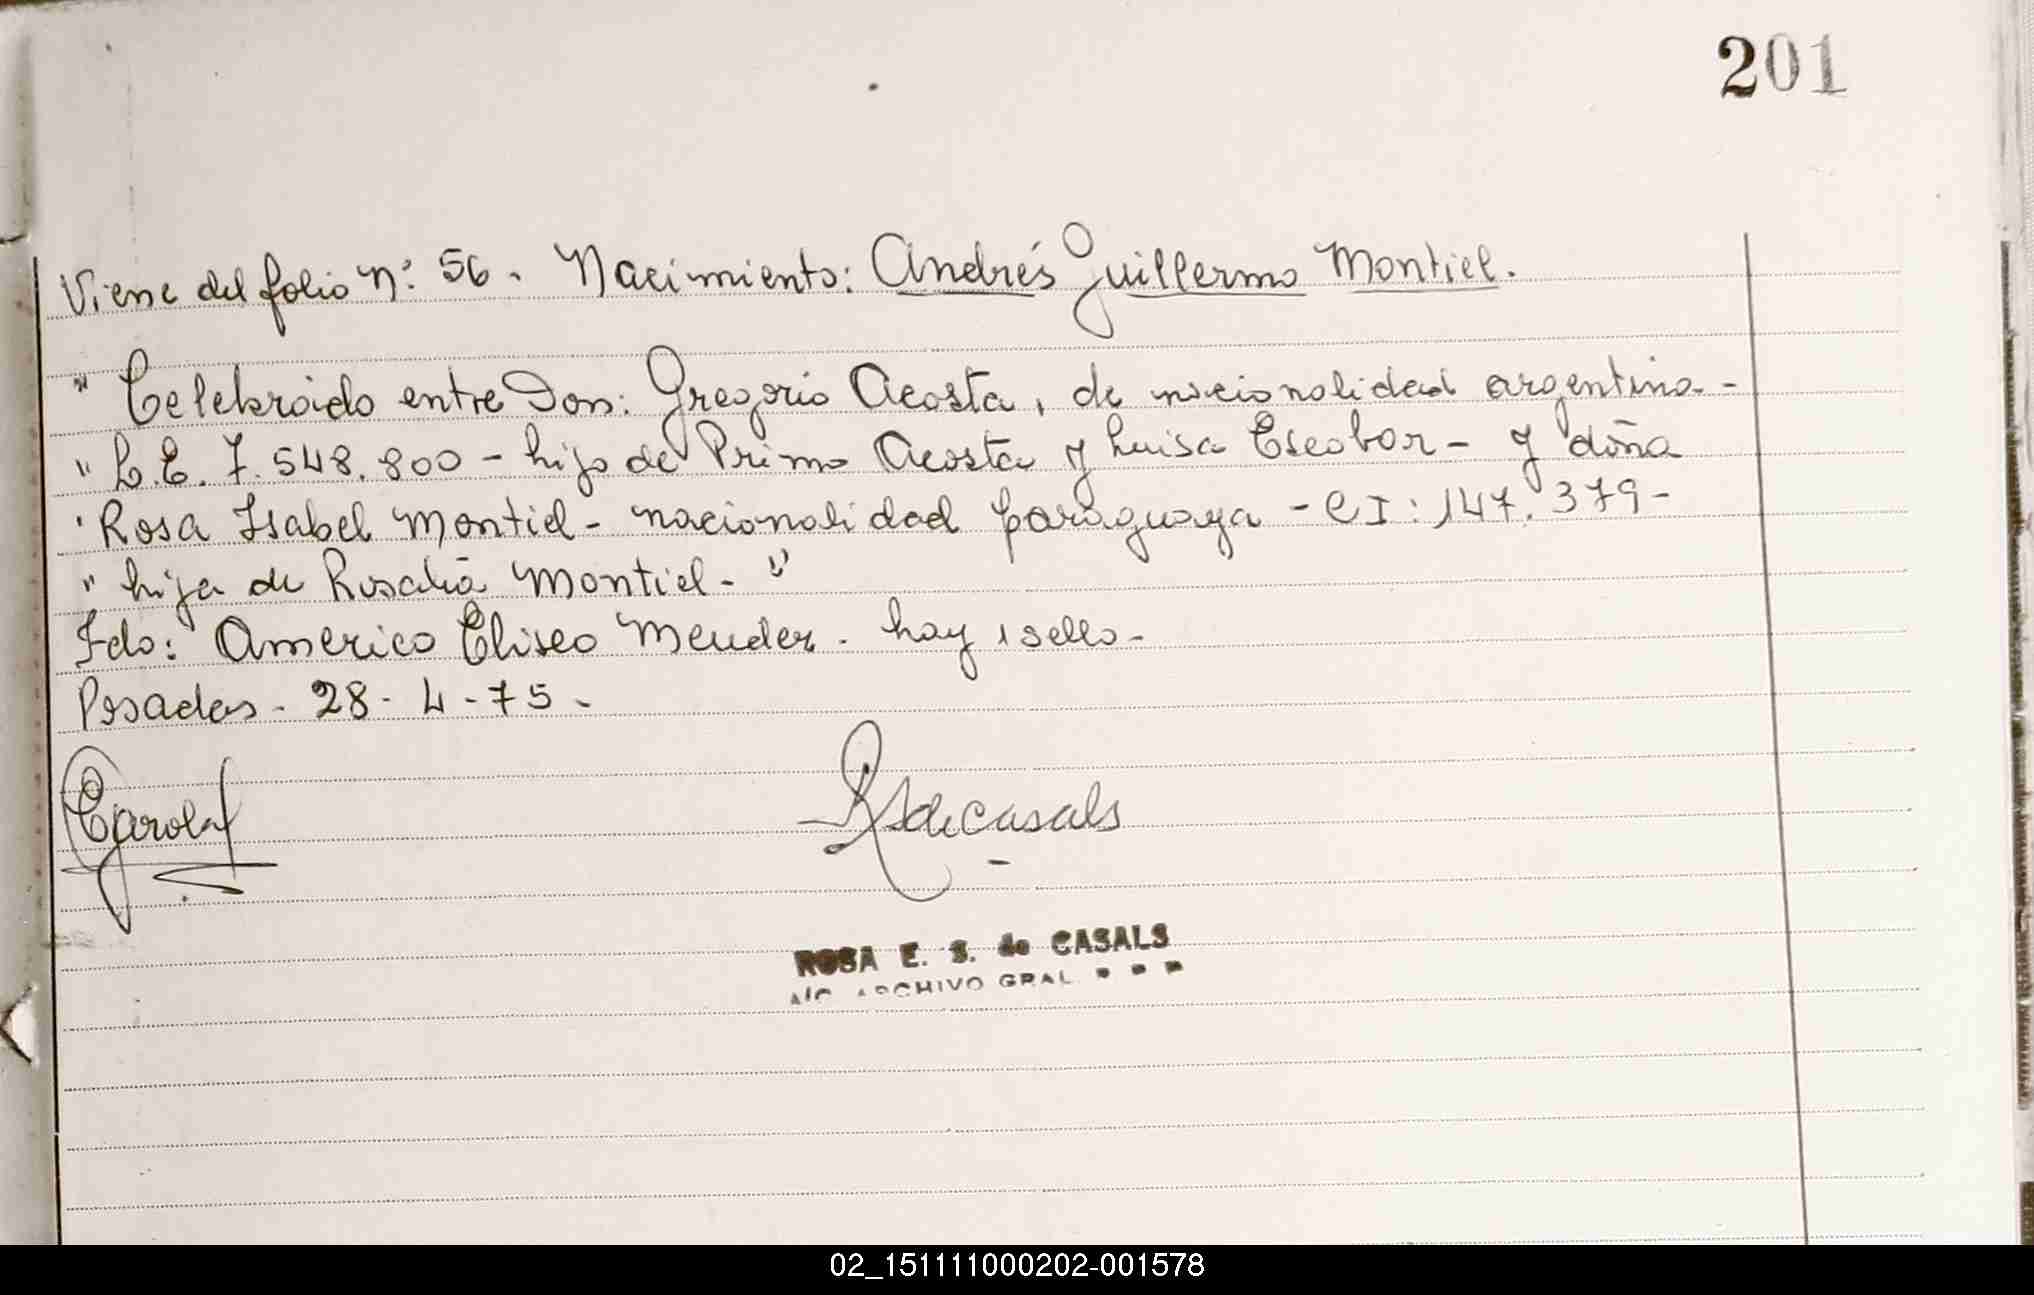 201
Viene del folio Nº 56. Nacimiento: Andrés Guillermo Montiel.
" Celebraido entre Don: Gregorio Acosta, de nacionalidad argentina -
" L.E. 7.548.800 - hijo de Primo Acosta y Luisa Escobar - y doña
" Rosa Isabel Montiel - nacionalidad paraguaya - CI: 147.379 -
" hija de Rosalía Montiel - "
Fdo: Americo Eliseo Mender. hay 1 sello -
Posadas. 28. 4 - 75 -
Rsdecasals
ROSA E. S. de CASALS
ARCHIVO GRAL
02_151111000202-001578